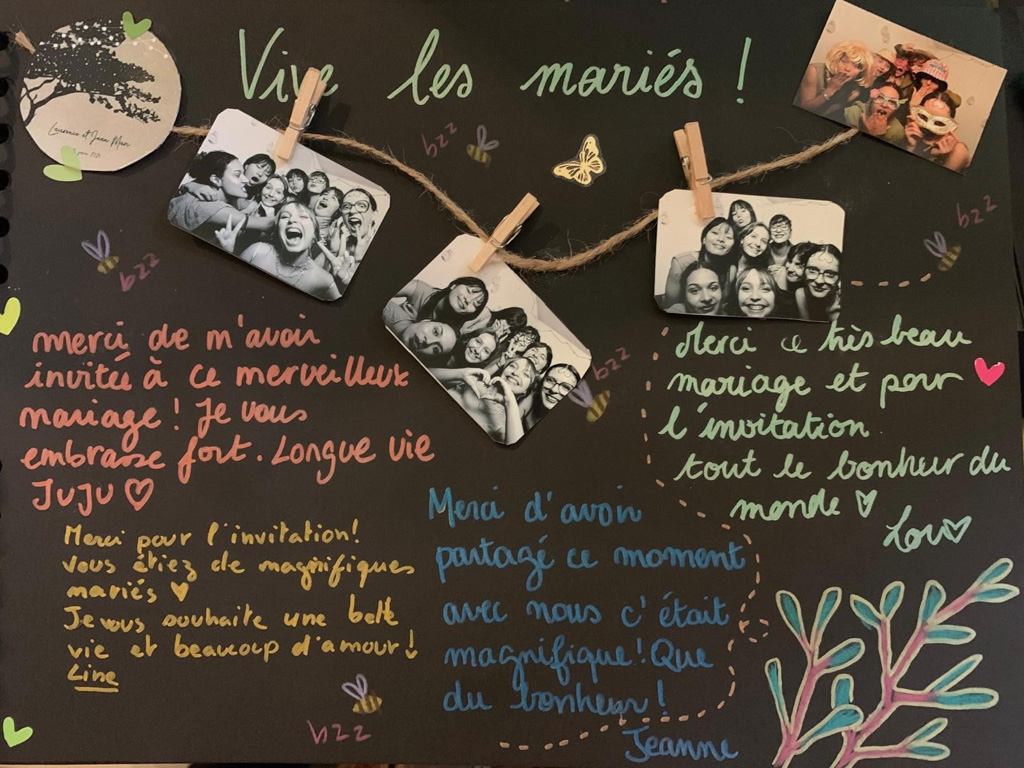 Vive les mariés !
Laurence et Jean Marc
bzz
bzz
bzz
bzz
merci de m'avoir
invitée à ce merveilleux
mariage ! Je vous
embrasse fort. Longue vie
JUJU ♡
Merci ce très beau
mariage et pour
l'invitation
tout le bonheur du
monde ♡
Lou ♡
Merci pour l'invitation!
Vous étiez de magnifiques
mariés ♥
Je vous souhaite une belle
vie et beaucoup d'amour!
Line
Merci d'avoir
partagé ce moment
avec nous c'était
magnifique! Que
du bonheur!
Jeanne
bzz